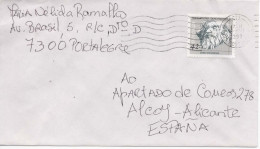 Nélida Ramalho
Av. Brasil, 5, R/C, Dto D
7300 PORTALEGRE
AO
APARTADO DE CORREOS, 278
Alcoy-Alicante
ESPAÑA